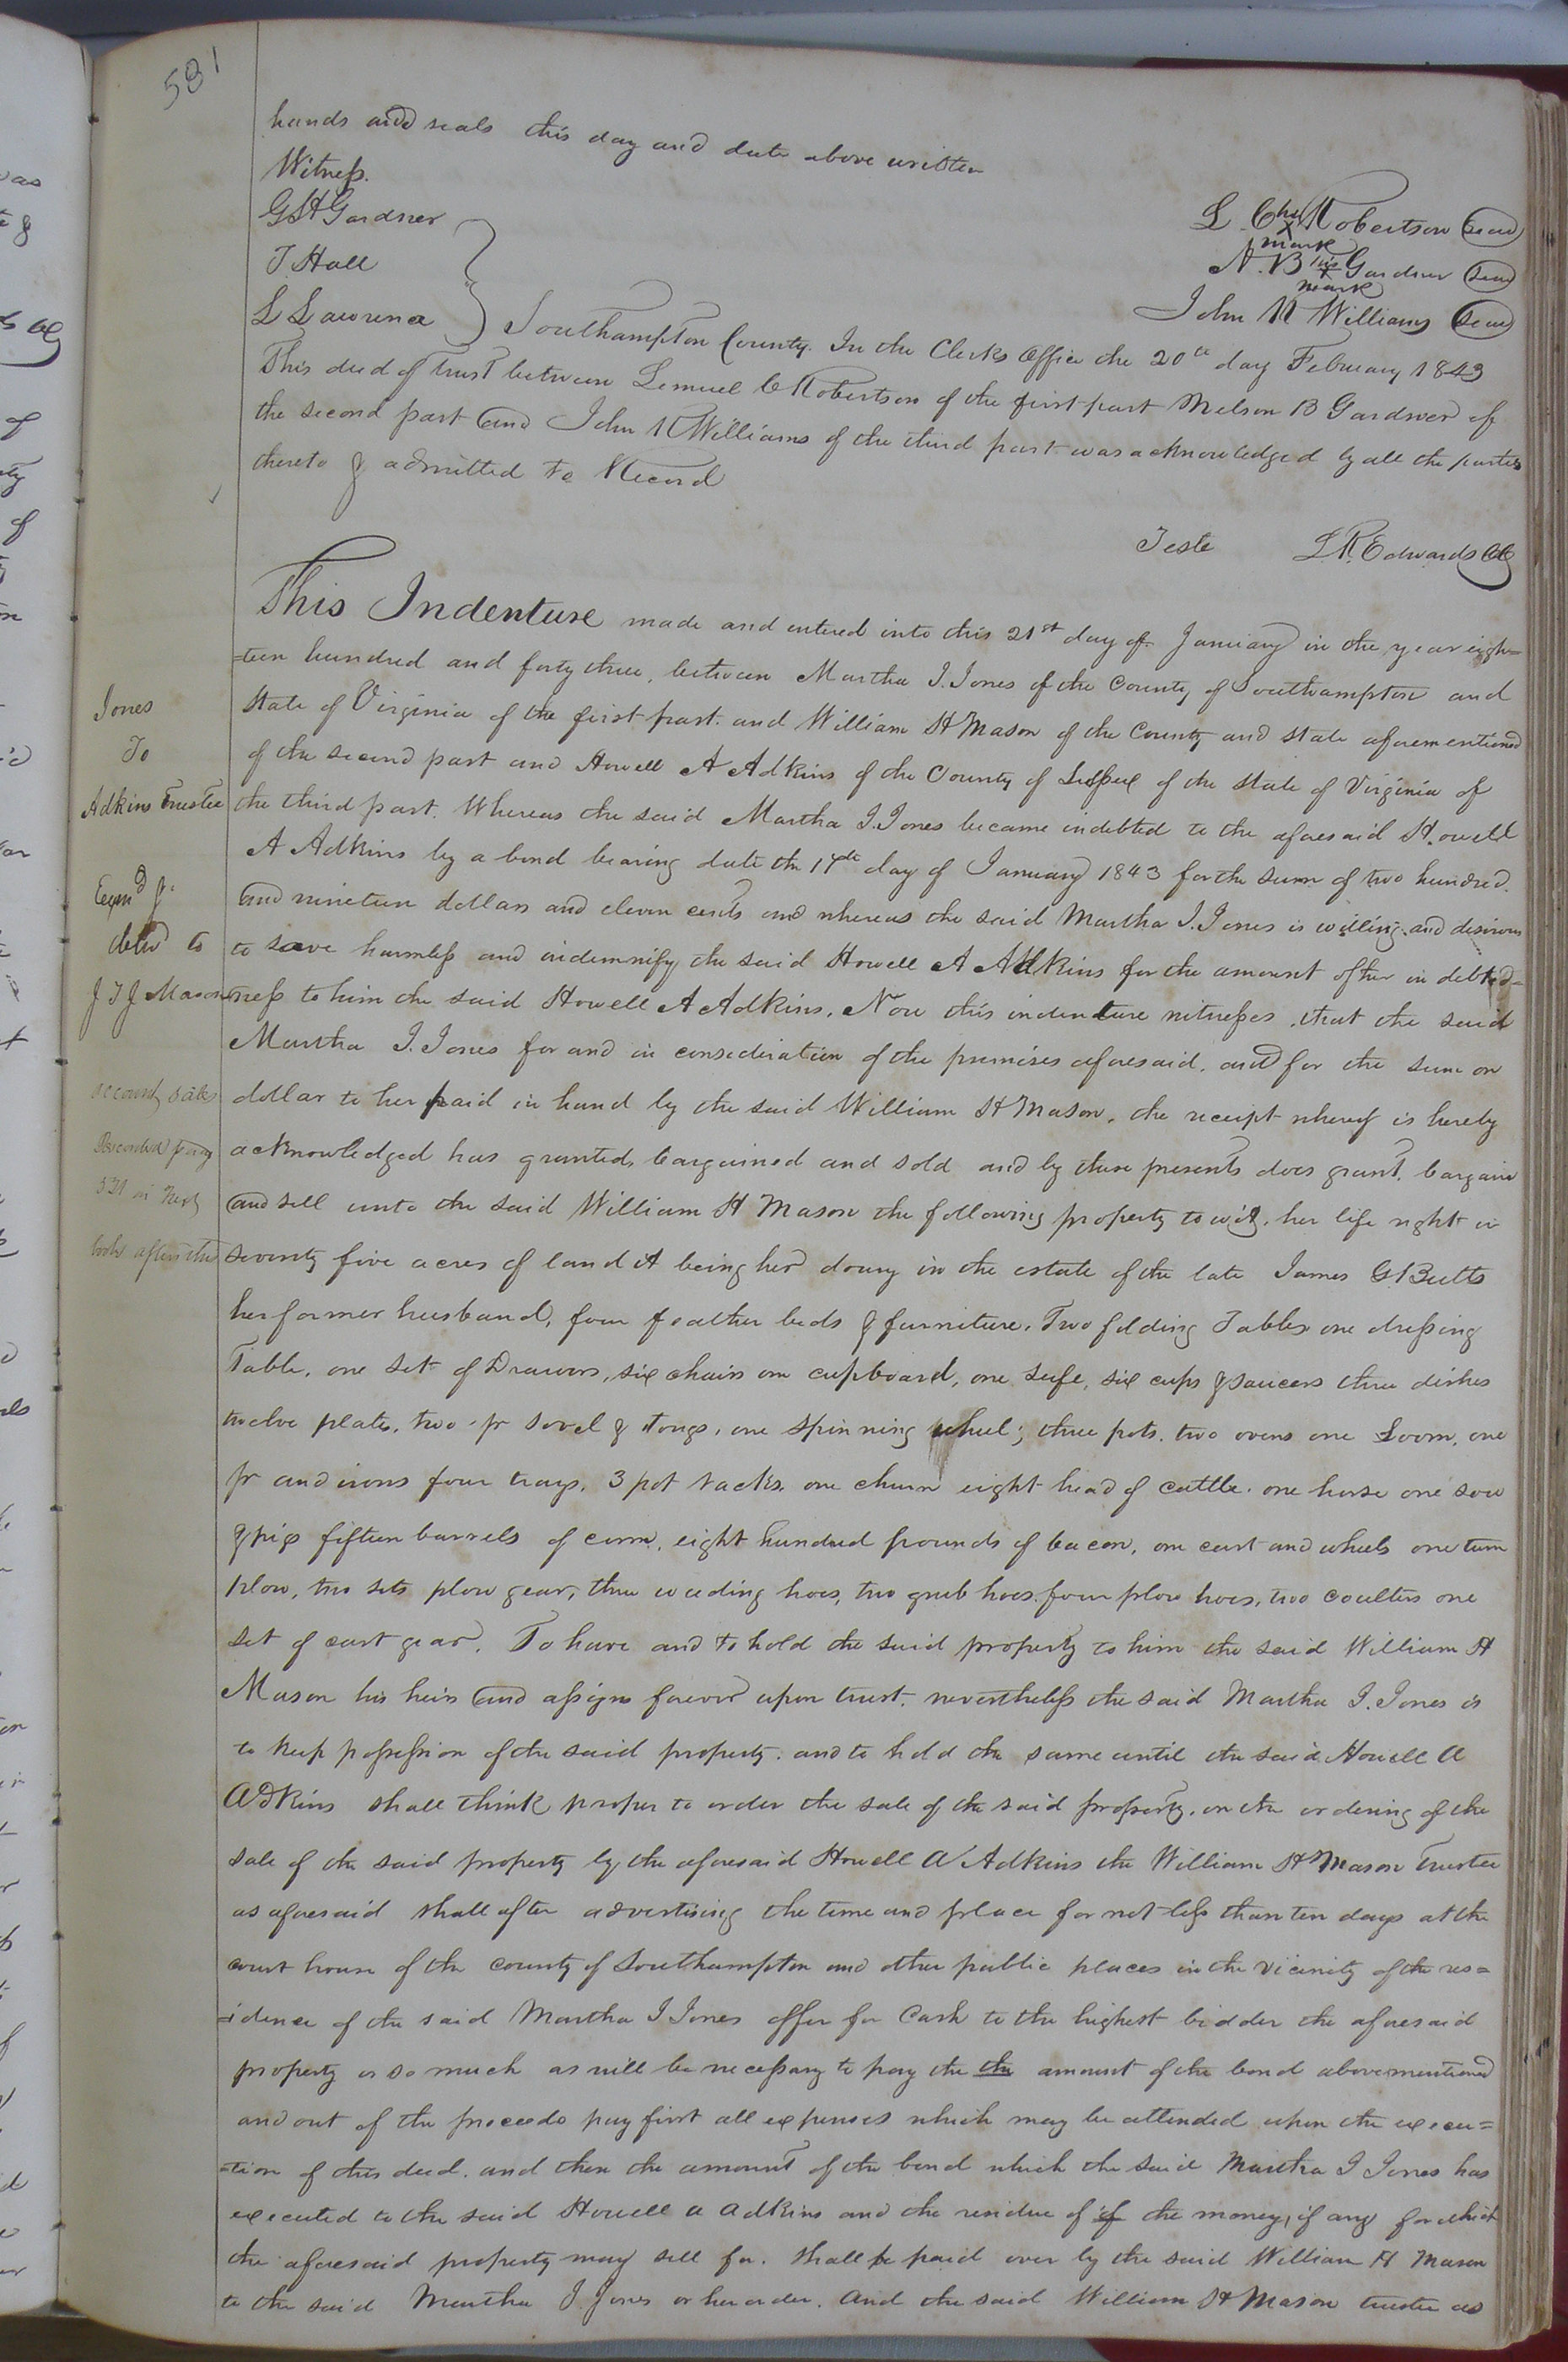 581
hands and seals this day and date above written
Witness.
G H Gardner
T. Hall
L Lawrence
L. C his X mark Robertson Seal
N. B his X mark Gardner Seal
John R Williams Seal
Southampton County. In the Clerks Office the 20th day February 1843
This deed of trust between Lemuel C Robertson of the first part Melson B Gardner of
the second part and John R Williams of the third part was acknowledged by all the parties
thereto & admitted to Record
Teste L. R. Edwards Clk
This Indenture made and entered into this 21st day of January in the year eigh=
=teen hundred and forty three, between Martha J. Jones of the County of Southampton and
State of Virginia of the first part. and William H Mason of the County and state aforementioned
of the second part and Howell A Adkins of the County of Sussex of the state of Virginia of
the third part. Whereas the said Martha J. Jones became indebted to the aforesaid Howell
A Adkins by a bond bearing date the 17th day of January 1843 for the sum of two hundred.
and nineteen dollars and eleven cents and whereas the said Martha J. Jones is willing and desirous
to save harmless and indemnify the said Howell A Adkins for the amount of her in debted=
ness to him the said Howell A Adkins. Now this indenture witnesses, that the said
Martha J. Jones for and in consideration of the premises aforesaid, and for the sum on
dollar to her paid in hand by the said William H Mason, the receipt whereof is hereby
acknowledged has granted, bargained and sold and by these presents does grant, bargain
and sell unto the said William H Mason the following property to wit, her life right in
seventy five acres of land it being her dowry in the estate of the late James G Butts
her former husband, four feather beds & furniture, Two folding Tables one dressing
Table, one set of Drawers, six chairs one cupboard, one safe, six cups & saucers three dishes
twelve plates, two pr sovel & tongs, one spinning wheel; three pots. two ovens one Loom, one
pr and irons four trays, 3 pot racks. one churn eight head of cattle. one horse one sow
& pigs fifteen barrels of corn, eight hundred pounds of bacon, one cart and wheels one turn
plow, two sets plow gear, three weeding hoes, two grub hoes four plow hoes, two coulters one
set of cart gear. To have and to hold the said property to him the said William H
Mason his heirs and assigns forever upon trust. nevertheless the said Martha J. Jones is
to keep possession of the said property. and to hold the same until the said Howell A
Adkins shall think proper to order the sale of the said property, on the ordering of the
sale of the said property by the aforesaid Howell A Adkins the William H Mason Trustee
as aforesaid shall after advertising the time and place for not less than ten days at the
court house of the county of Southampton and other public places in the vicinity of the res=
=idence of the said Martha J Jones offer for Cash to the highest bidder the aforesaid
property or so much as will be necessary to pay the the amount of the bond above mentioned
and out of the proceeds pay first all expenses which may be attended upon the execu=
=tion of this deed. and then the amount of the bond which the said Martha J Jones has
executed to the said Howell A Adkins and the residue of if the money, if any for which
the aforesaid property may sell for. shall be paid over by the said William H Mason
to the said Martha J. Jones or her order. And the said William H Mason trustee as
Jones
To
Adkins Trustee
Exmd &
deld to
J T J Mason
account sales
Recorded page
521 in next
book after this